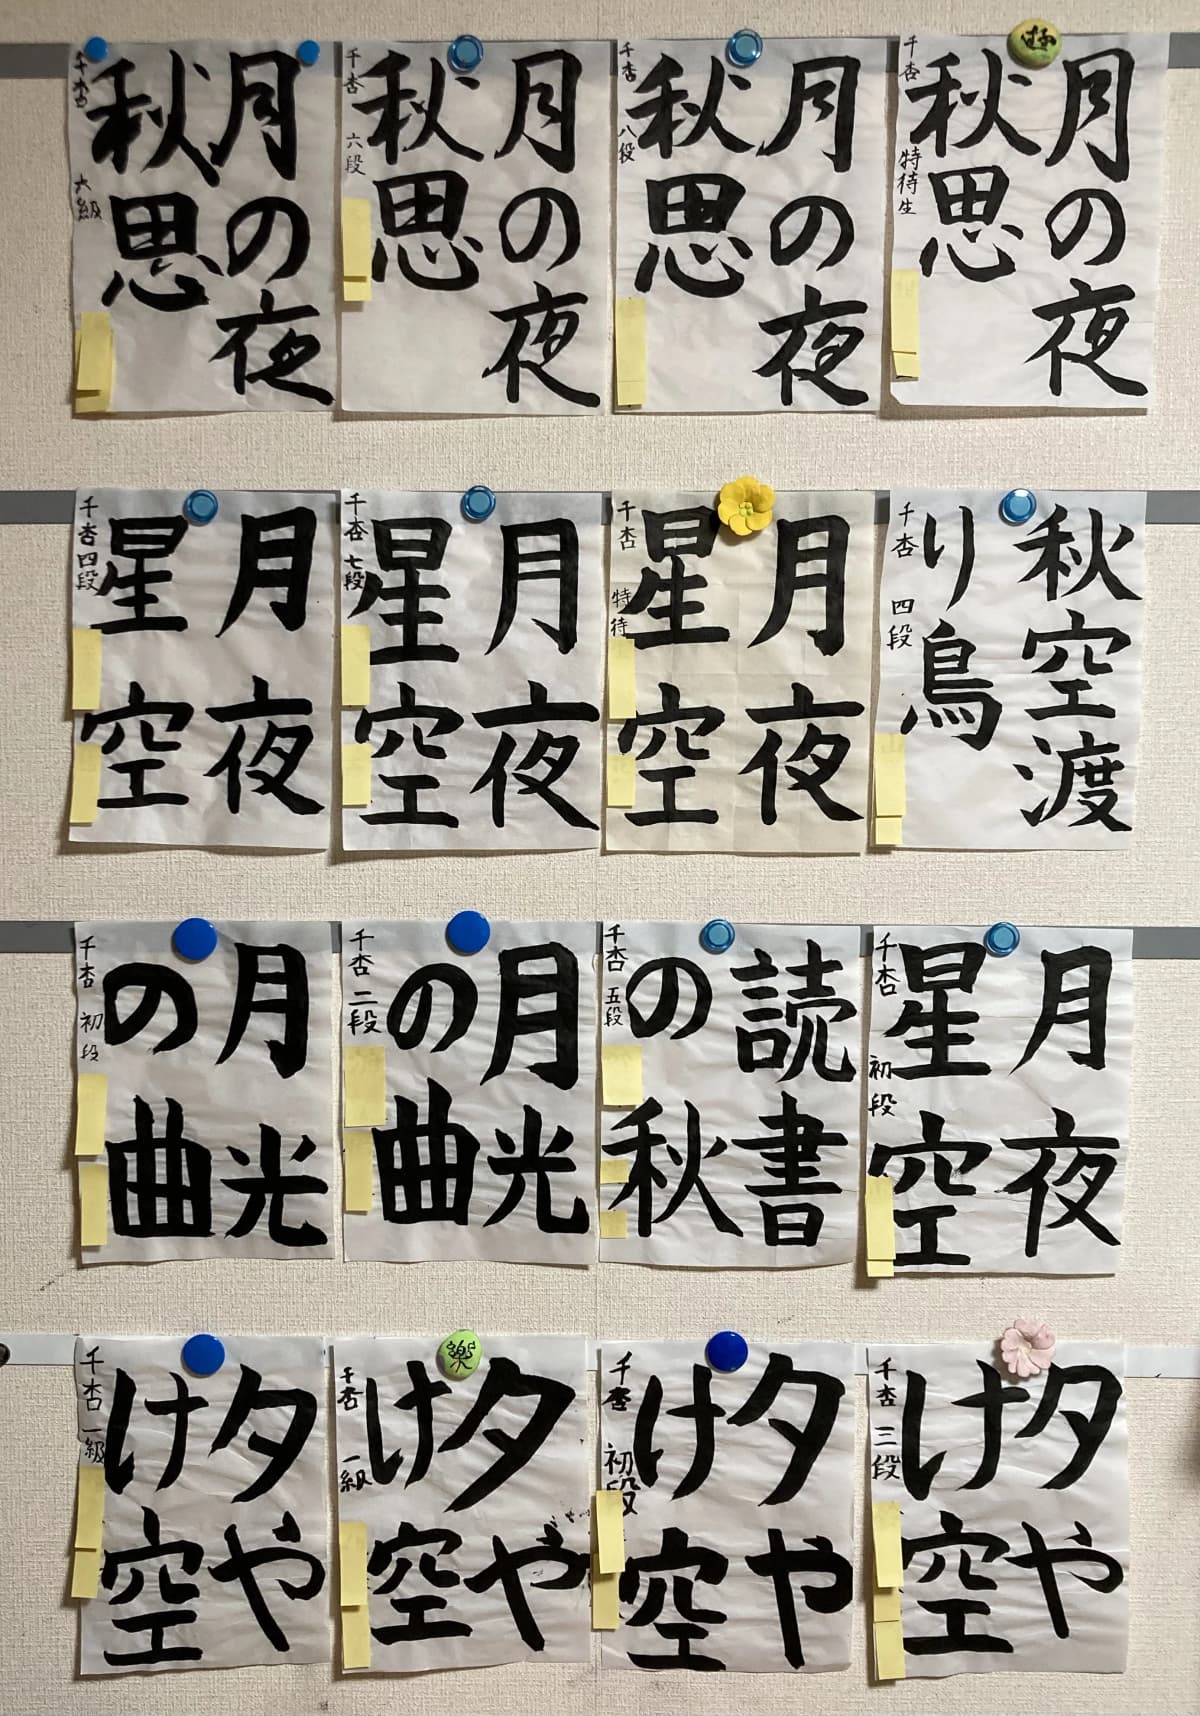 月の夜
秋思
千杏 六級
月の夜
秋思
千杏 六段
月の夜
秋思
千杏 八段
月の夜
秋思
千杏 特待生
月夜
星空
千杏 四段
月夜
星空
千杏 七段
月夜
星空
千杏 特待
秋空渡
り鳥
千杏 四段
月光
の曲
千杏 初段
月光
の曲
千杏 二段
読書
の秋
千杏 五段
月夜
星空
千杏 初段
夕や
け空
千杏 一級
楽
夕や
け空
千杏 一級
夕や
け空
千杏 初段
夕や
け空
千杏 三段